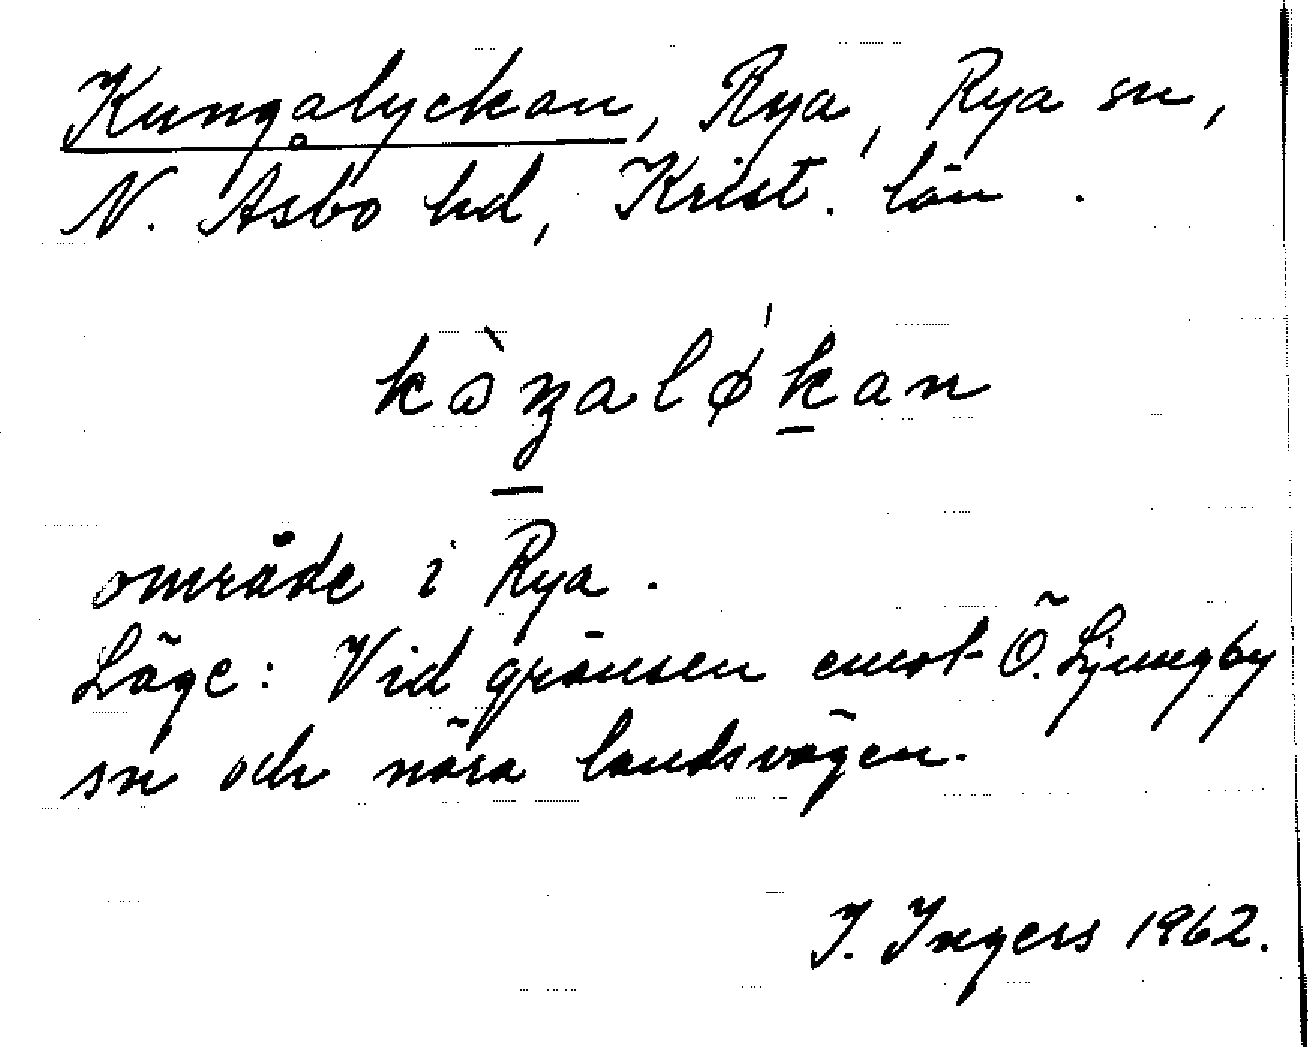 Kungalyckan, Rya, Rya sn,
N. Åsbo hd, Krist. län.
kòŋaløkan
område i Rya.
Läge: Vid gränsen emot Ö. Ljungby
sn och nära landsvägen.
I. Ingers 1962.